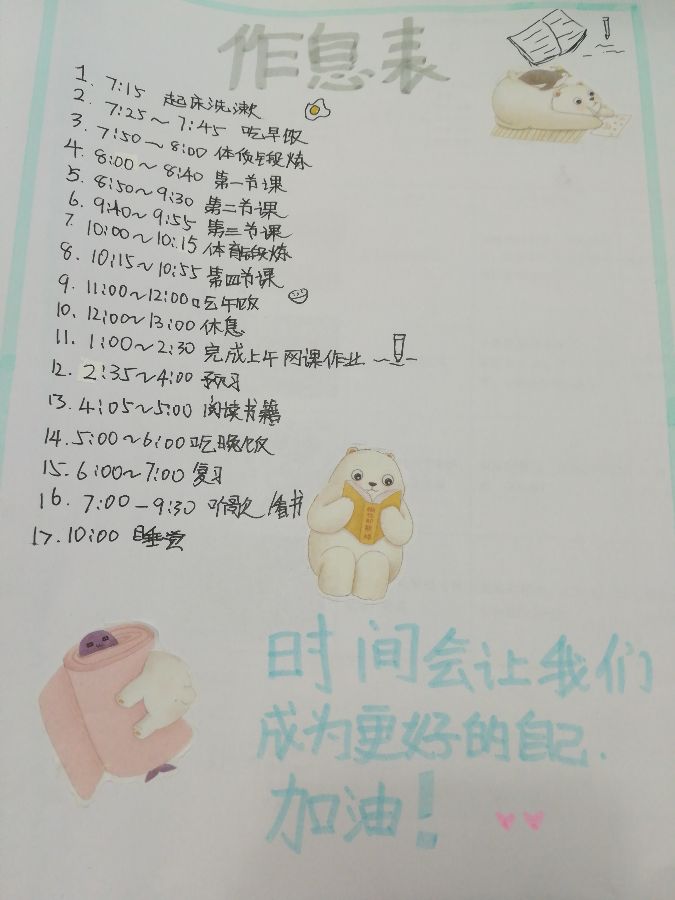 作息表
1. 7:15 起床洗漱
2. 7:25~7:45 吃早饭
3. 7:50~8:00 体育段炼
4. 8:00~8:40 第一节课
5. 8:50~9:30 第二节课
6. 9:40~9:55 第三节课
7. 10:00~10:15 体育段炼
8. 10:15~10:55 第四节课
9. 11:00~12:00 吃午饭
10. 12:00~13:00 休息
11. 1:00~2:30 完成上午网课作业
12. 2:35~4:00 预习
13. 4:05~5:00 阅读书籍
14. 5:00~6:00 吃晚饭
15. 6:00~7:00 复习
16. 7:00-9:30 听歌/看书
17. 10:00 睡觉
时间会让我们
成为更好的自己.
加油!